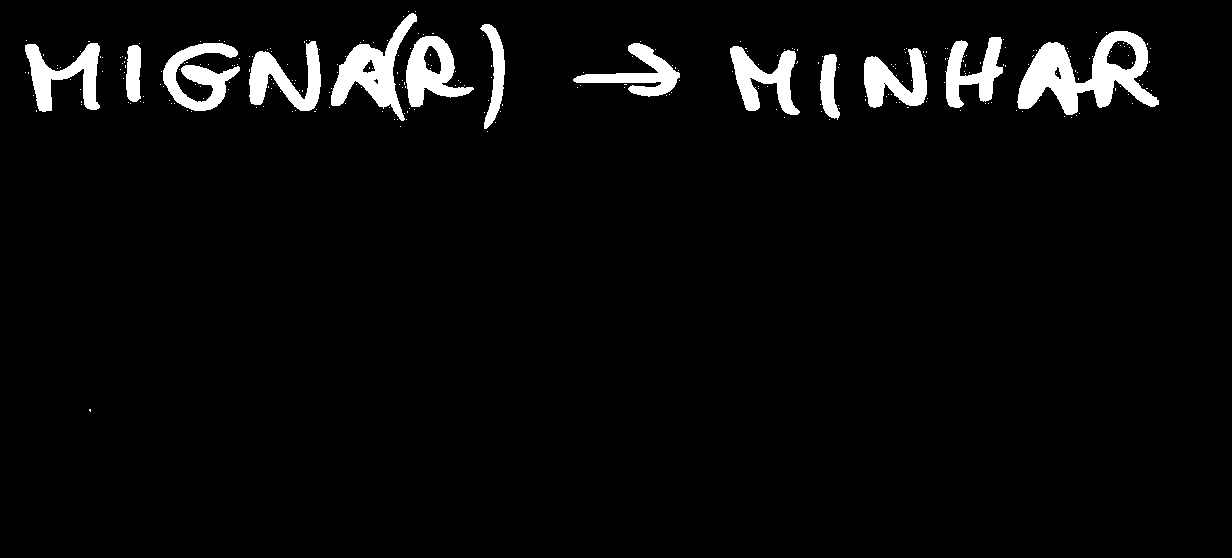 MIGNA(R) → MINHAR